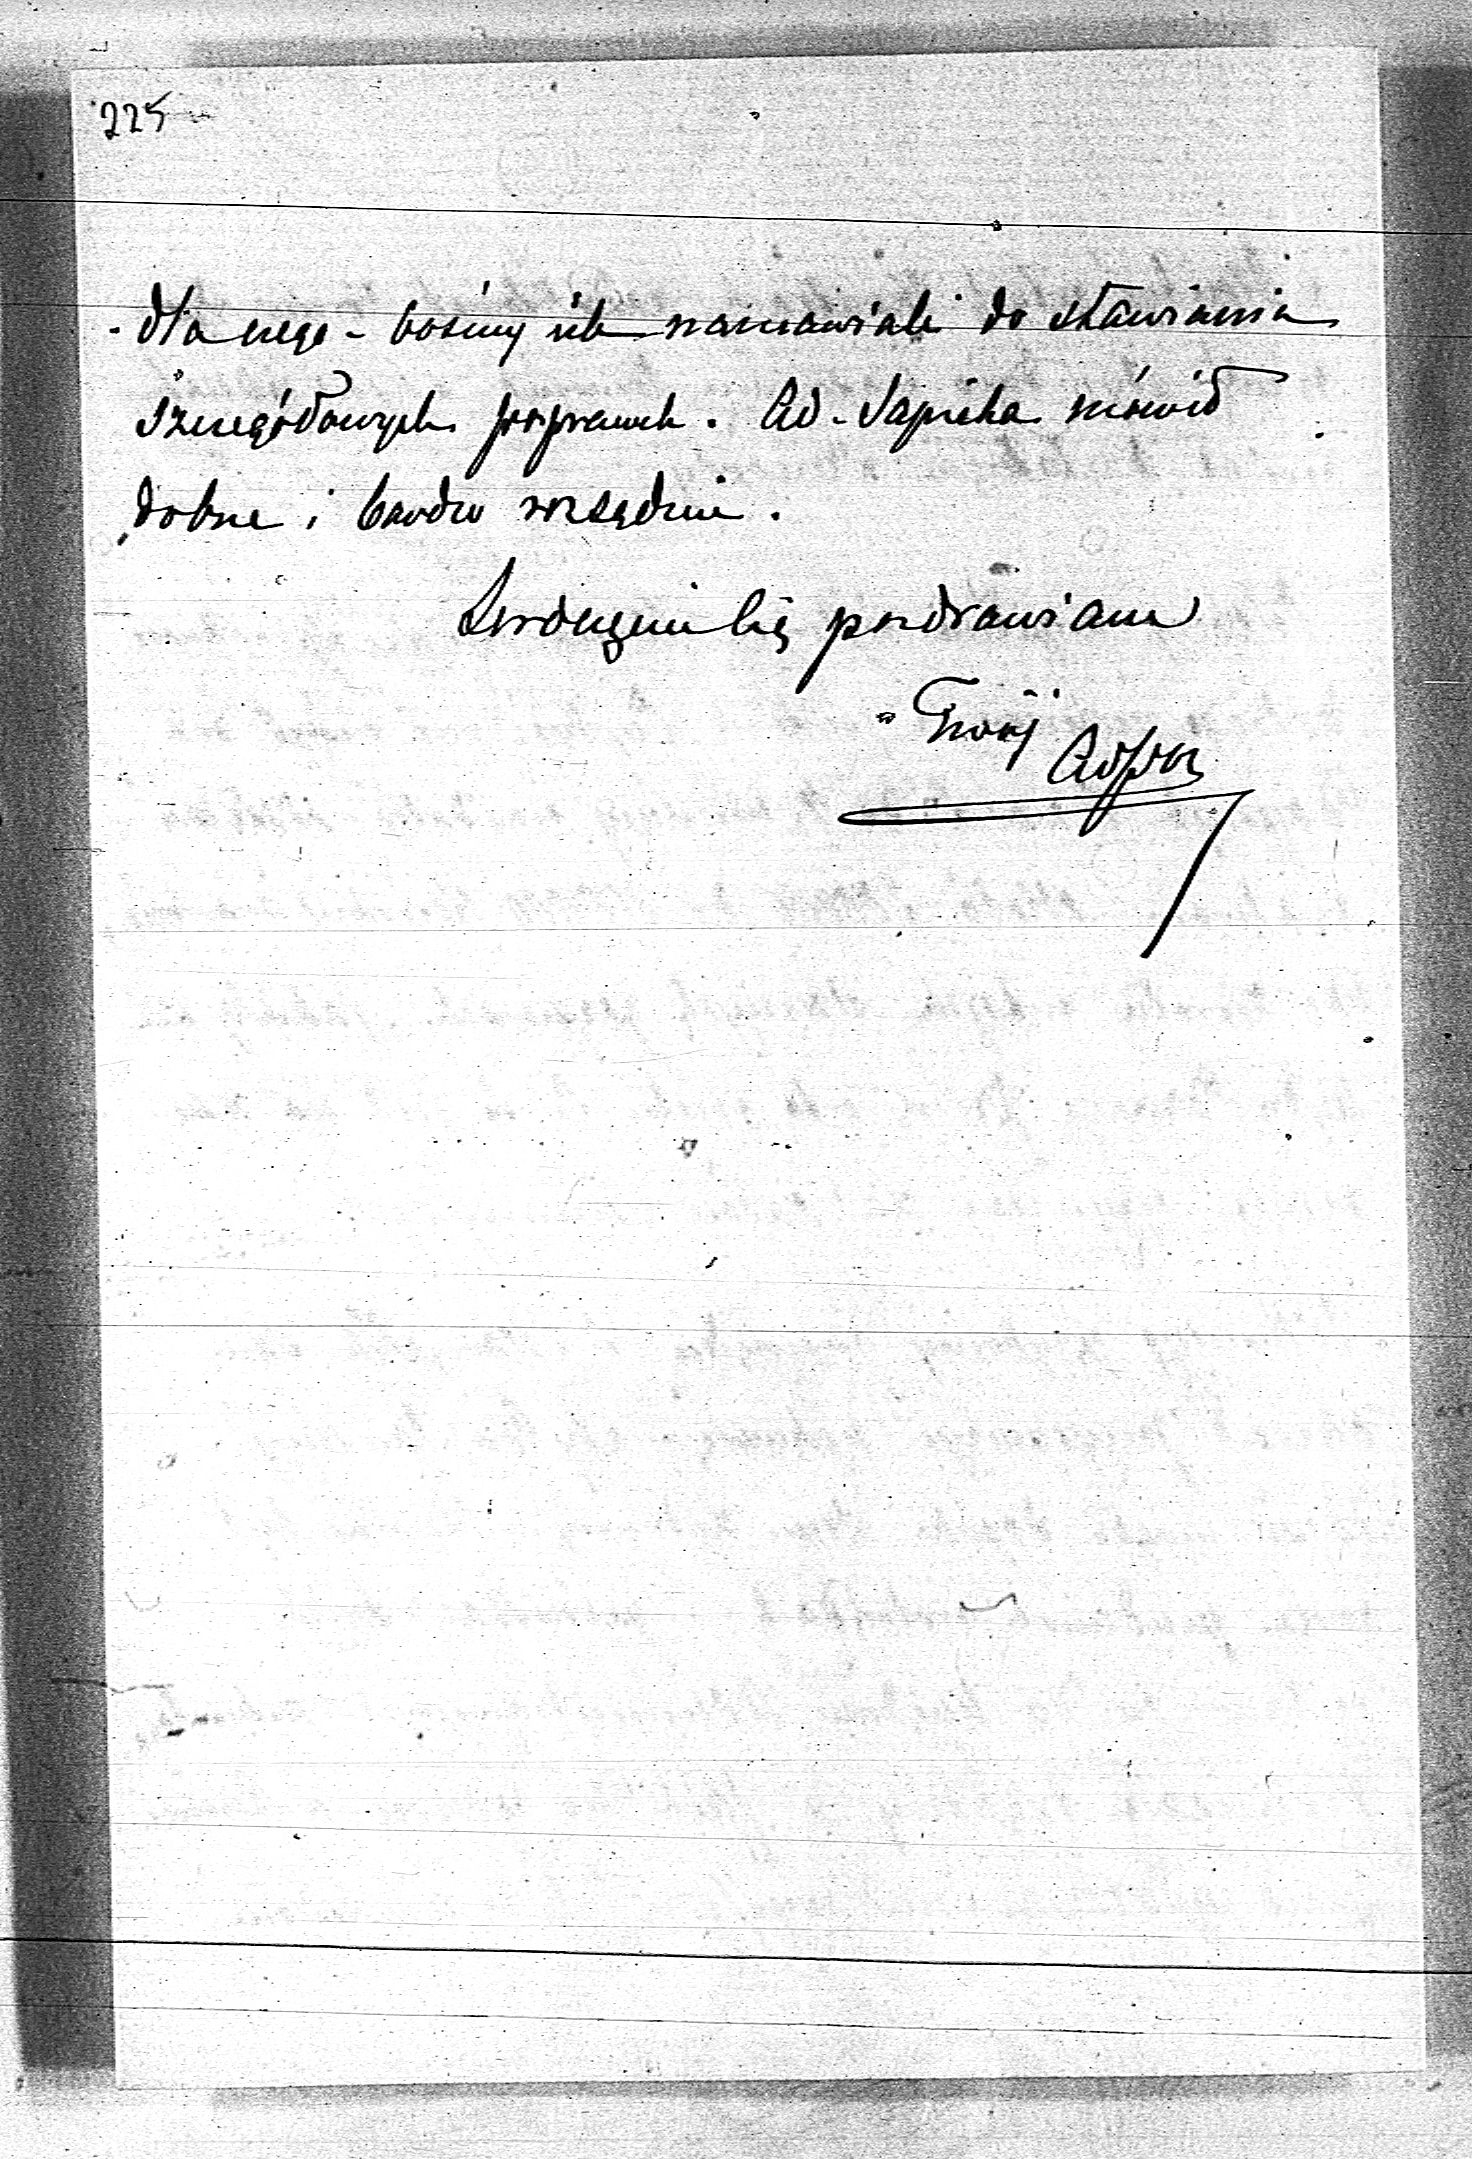 225
dla czego - bośmy ich namawiali do stawiania
szczegółowych poprawek. Ad. Sapieha mówił
dobrze i bardzo rozsądnie.
Serdecznie Cię pozdrawiam
Twój